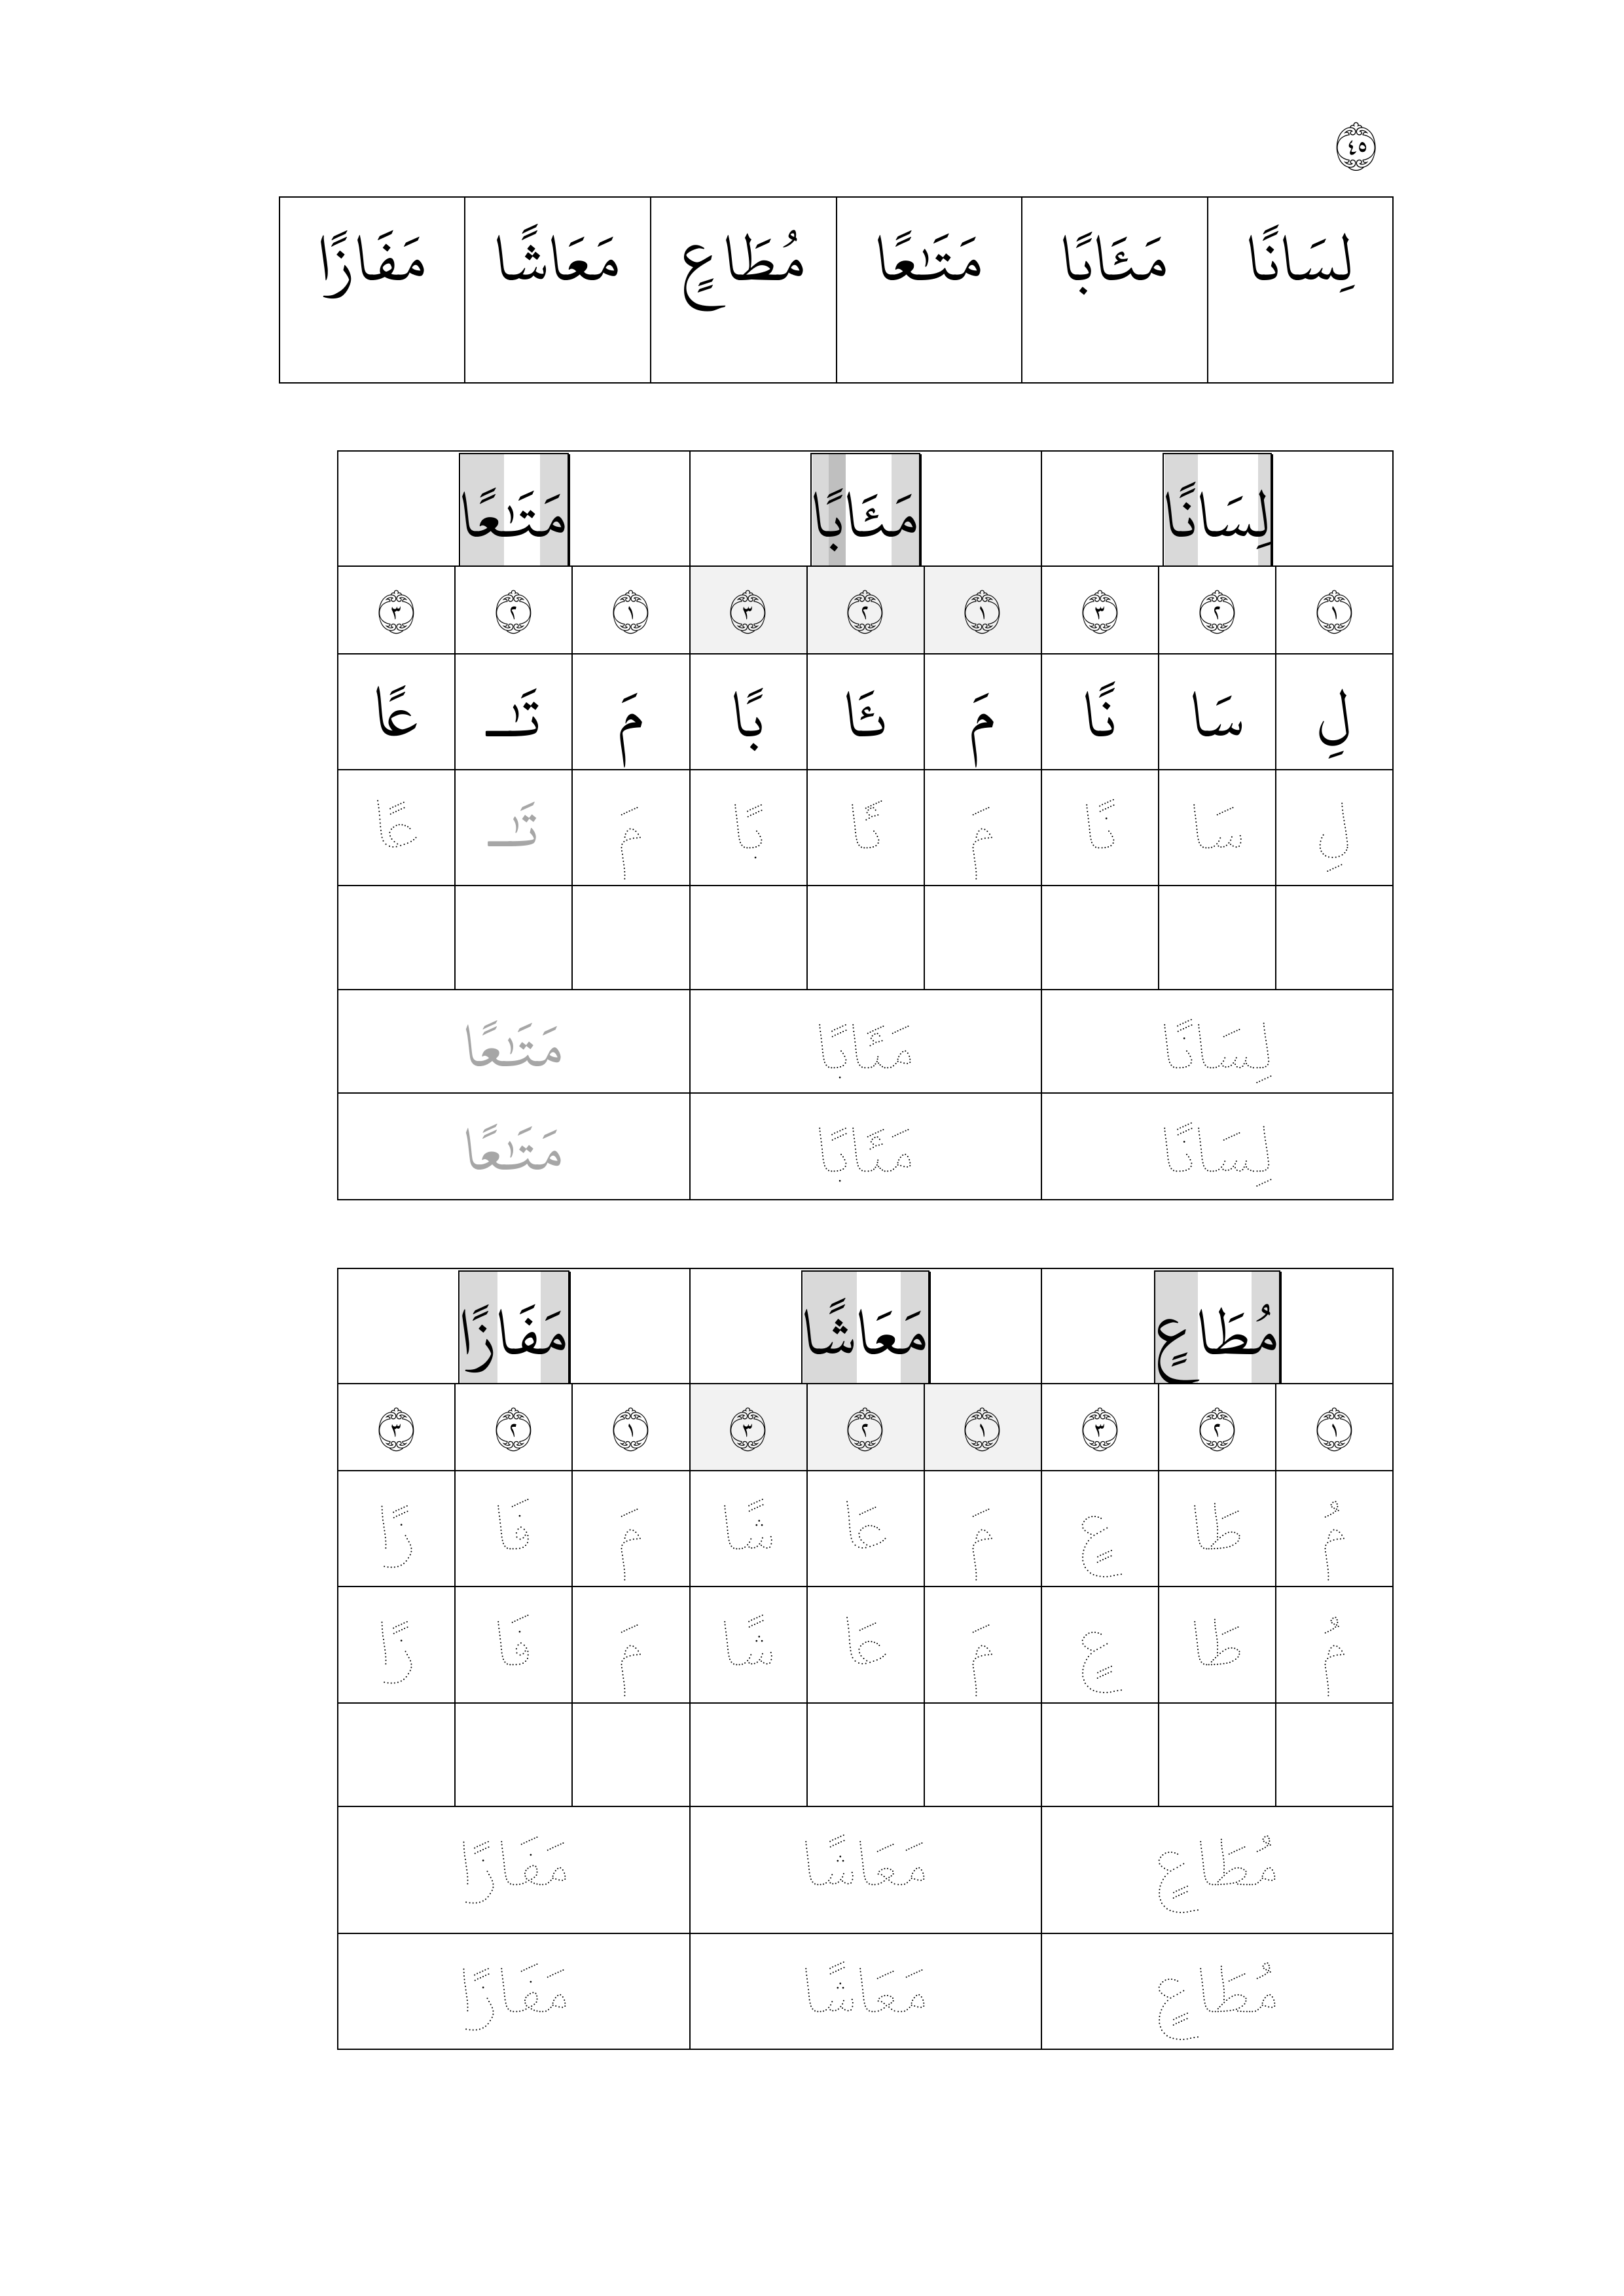 ٤٥
لِسَانًا مَئَابًا مَتَٰعًا مُطَاعٍ مَعَاشًا مَفَازًا
لِسَانًا مَئَابًا مَتَٰعًا
١ ٢ ٣ ١ ٢ ٣ ١ ٢ ٣
لِ سَا نًا مَ ئَا بًا مَ تَٰـ عًا
لِ سَا نًا مَ ئَا بًا مَ تَٰـ عًا
لِسَانًا مَئَابًا مَتَٰعًا
لِسَانًا مَئَابًا مَتَٰعًا
مُطَاعٍ مَعَاشًا مَفَازًا
١ ٢ ٣ ١ ٢ ٣ ١ ٢ ٣
مُ طَا عٍ مَ عَا شًا مَ فَا زًا
مُ طَا عٍ مَ عَا شًا مَ فَا زًا
مُطَاعٍ مَعَاشًا مَفَازًا
مُطَاعٍ مَعَاشًا مَفَازًا